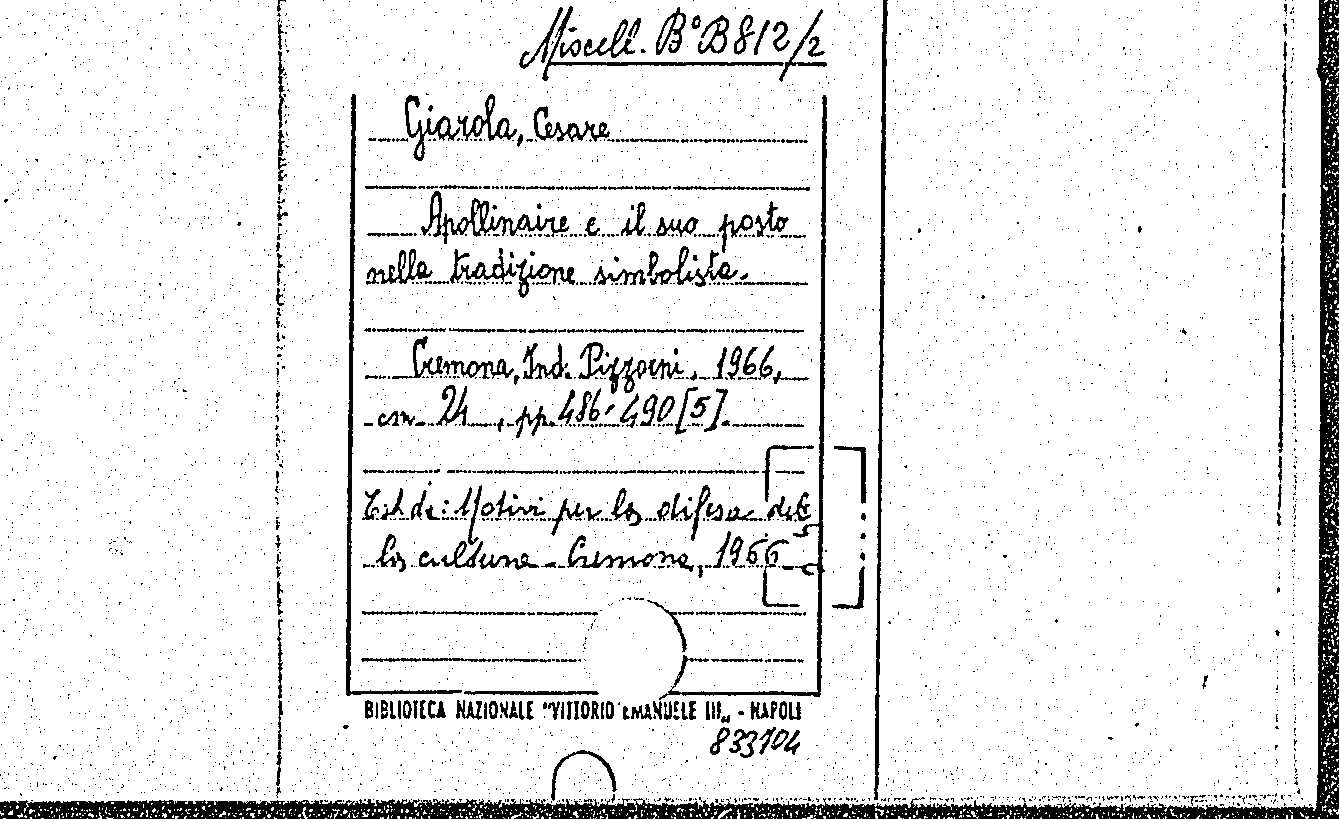 Miscell. B° B 812/2
Giarola, Cesare
Apollinaire e il suo posto
nella tradizione simbolista.
Cremona, Ind. Pizzorni, 1966,
cm. 24, pp. 486-490 [5].
Est. di: Motivi per la difesa del
la cultura - Cremona, 1966
BIBLIOTECA NAZIONALE "VITTORIO EMANUELE III„ - NAPOLI
833104